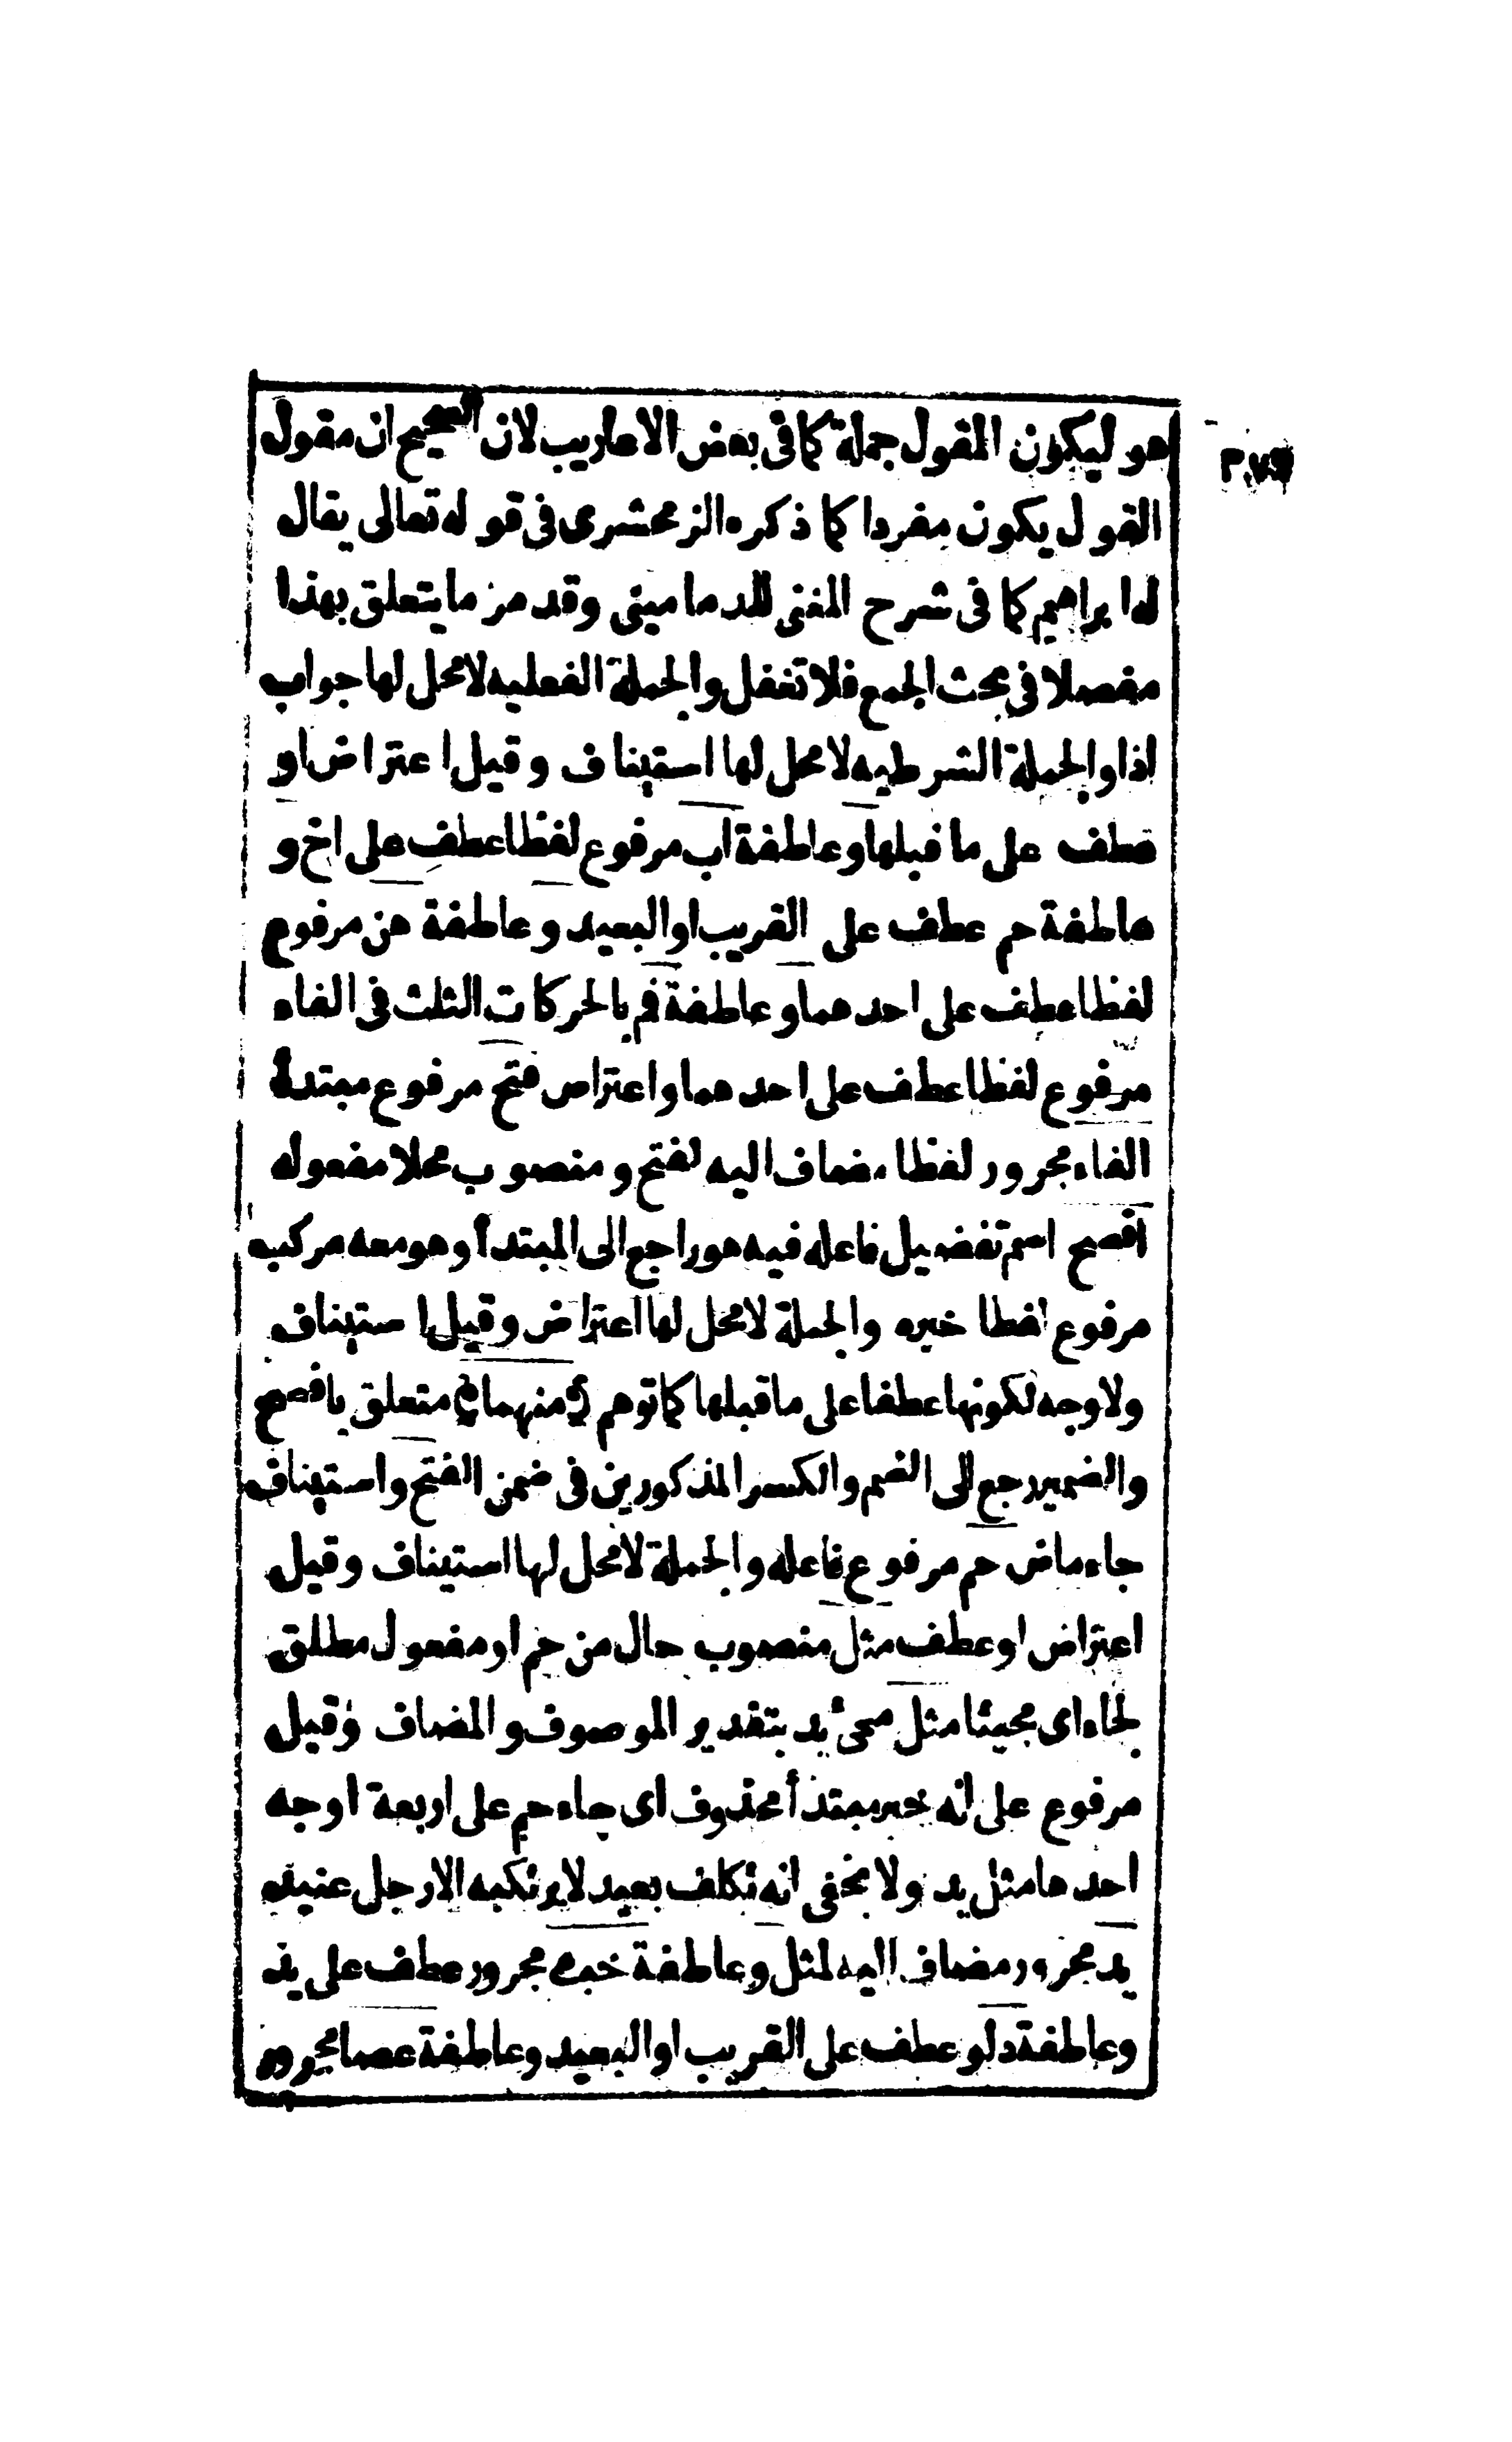 هو ليكون المقول جملة كما فى بعض الاعاريب لان الصحيح ان مقول
القول يكون مفردا كما ذكره الزمحشرى فى قوله تعالى يقال
له ابراهيم كما فى شرح المغنى للدمامينى وقد مر ما يتعلق بهذا
مفصلا فى بحث الجمع فلا تغفل والجملة الفعليه لا محل لها جواب
اذا والجملة الشرطيه لا محل لها استيناف وقيل اعتراض او
عطف على ما قبلها وعاطفة اب مرفوع لفظا عطف على اخ و
عاطفة حم عطف على القريب او البعيد وعاطفة هن مرفوع
لفظا عطف على احدهما وعاطفة فم بالحركات الثلث فى الفاء
مرفوع لفظا عطف على احدهما واعتراض فتح مرفوع مبتدأ
الفاء مجرور لفظا مضاف اليه لفتح ومنصوب محلا مفعوله
افصح اسم تفضيل فاعله فيه هو راجع الى المبتدأ وهو معه مركب
مرفوع لفظا خبره والجملة لا محل لها اعتراض وقيل استيناف
ولا وجه لكونها عطفا على ما قبلها كما توهم ( منهما ) متعلق بافصح
والضمير رجع الى الضم والكسر المذكورين فى ضمن الفتح واستيناف
جاء ماض حم مرفوع فاعله والجملة لا محل لها استيناف وقيل
اعتراض او عطف مثل منصوب حال من حم او مفعول مطلق
لجاء اى مجيئا مثل مجئ يد بتقدير الموصوف والمضاف وقيل
مرفوع على انه خبر مبتدأ محذوف اى جاء حم على اربعة اوجه
احدها مثل يد ولا يخفى انه تكلف بعيد لا يرتكبه الا رجل عنيد
يد مجرور مضاف اليه لمثل وعاطفة خبء مجرور عطف على يد
وعاطفة دلو عطف على القريب او البعيد وعاطفة عصا مجرور